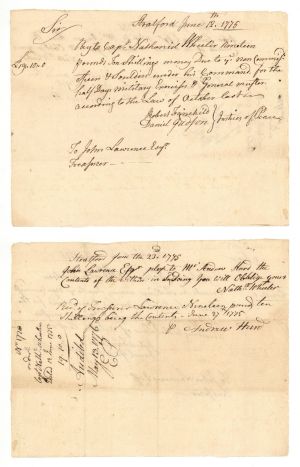 Stratford June 12th. 1775
Sir
£19.10.0
Pay to Capt. Nathaniel Wheeler Nineteen
pounds Ten Shillings money due to ye non Commisd.
officers & Souldiers under his Command for the
half Days Military Exercise & General muster
according to the Law of October last
Robert Fairchild
Daniel Judson
Justices of Peace
To John Lawrence Esqr.
Treasurer
Stratford June the 23d 1775
John Lawrence Esqr. please to Mr. Andrew Hurd the
Contents of the within &
you will Oblidge yours
Nathn. Wheeler
Recd. of Treasurer Lawrence Nineteen pound ten
Shillings being the Contents June 27 1775
Andrew Hurd
order
Capt. Nathl. Wheeler
June 1775
19.10.0
Audited
May 1776